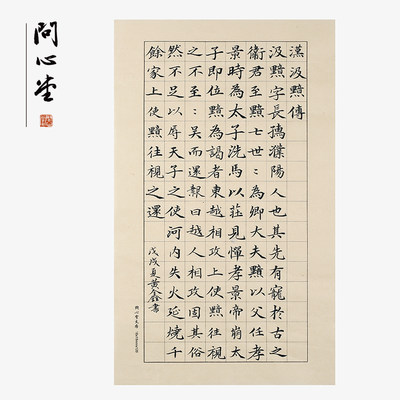 問心堂
漢汲黯傳
汲黯字長孺濮陽人也其先有寵於古之
衞君至黯七世世為卿大夫黯以父任孝
景時為太子洗馬以莊見憚孝景帝崩太
子即位黯為謁者東越相攻上使黯往視
之不至至吳而還報曰越人相攻固其俗
然不足以辱天子之使河內失火延燒千
餘家上使黯往視之還
戊戌夏黃金鑫書